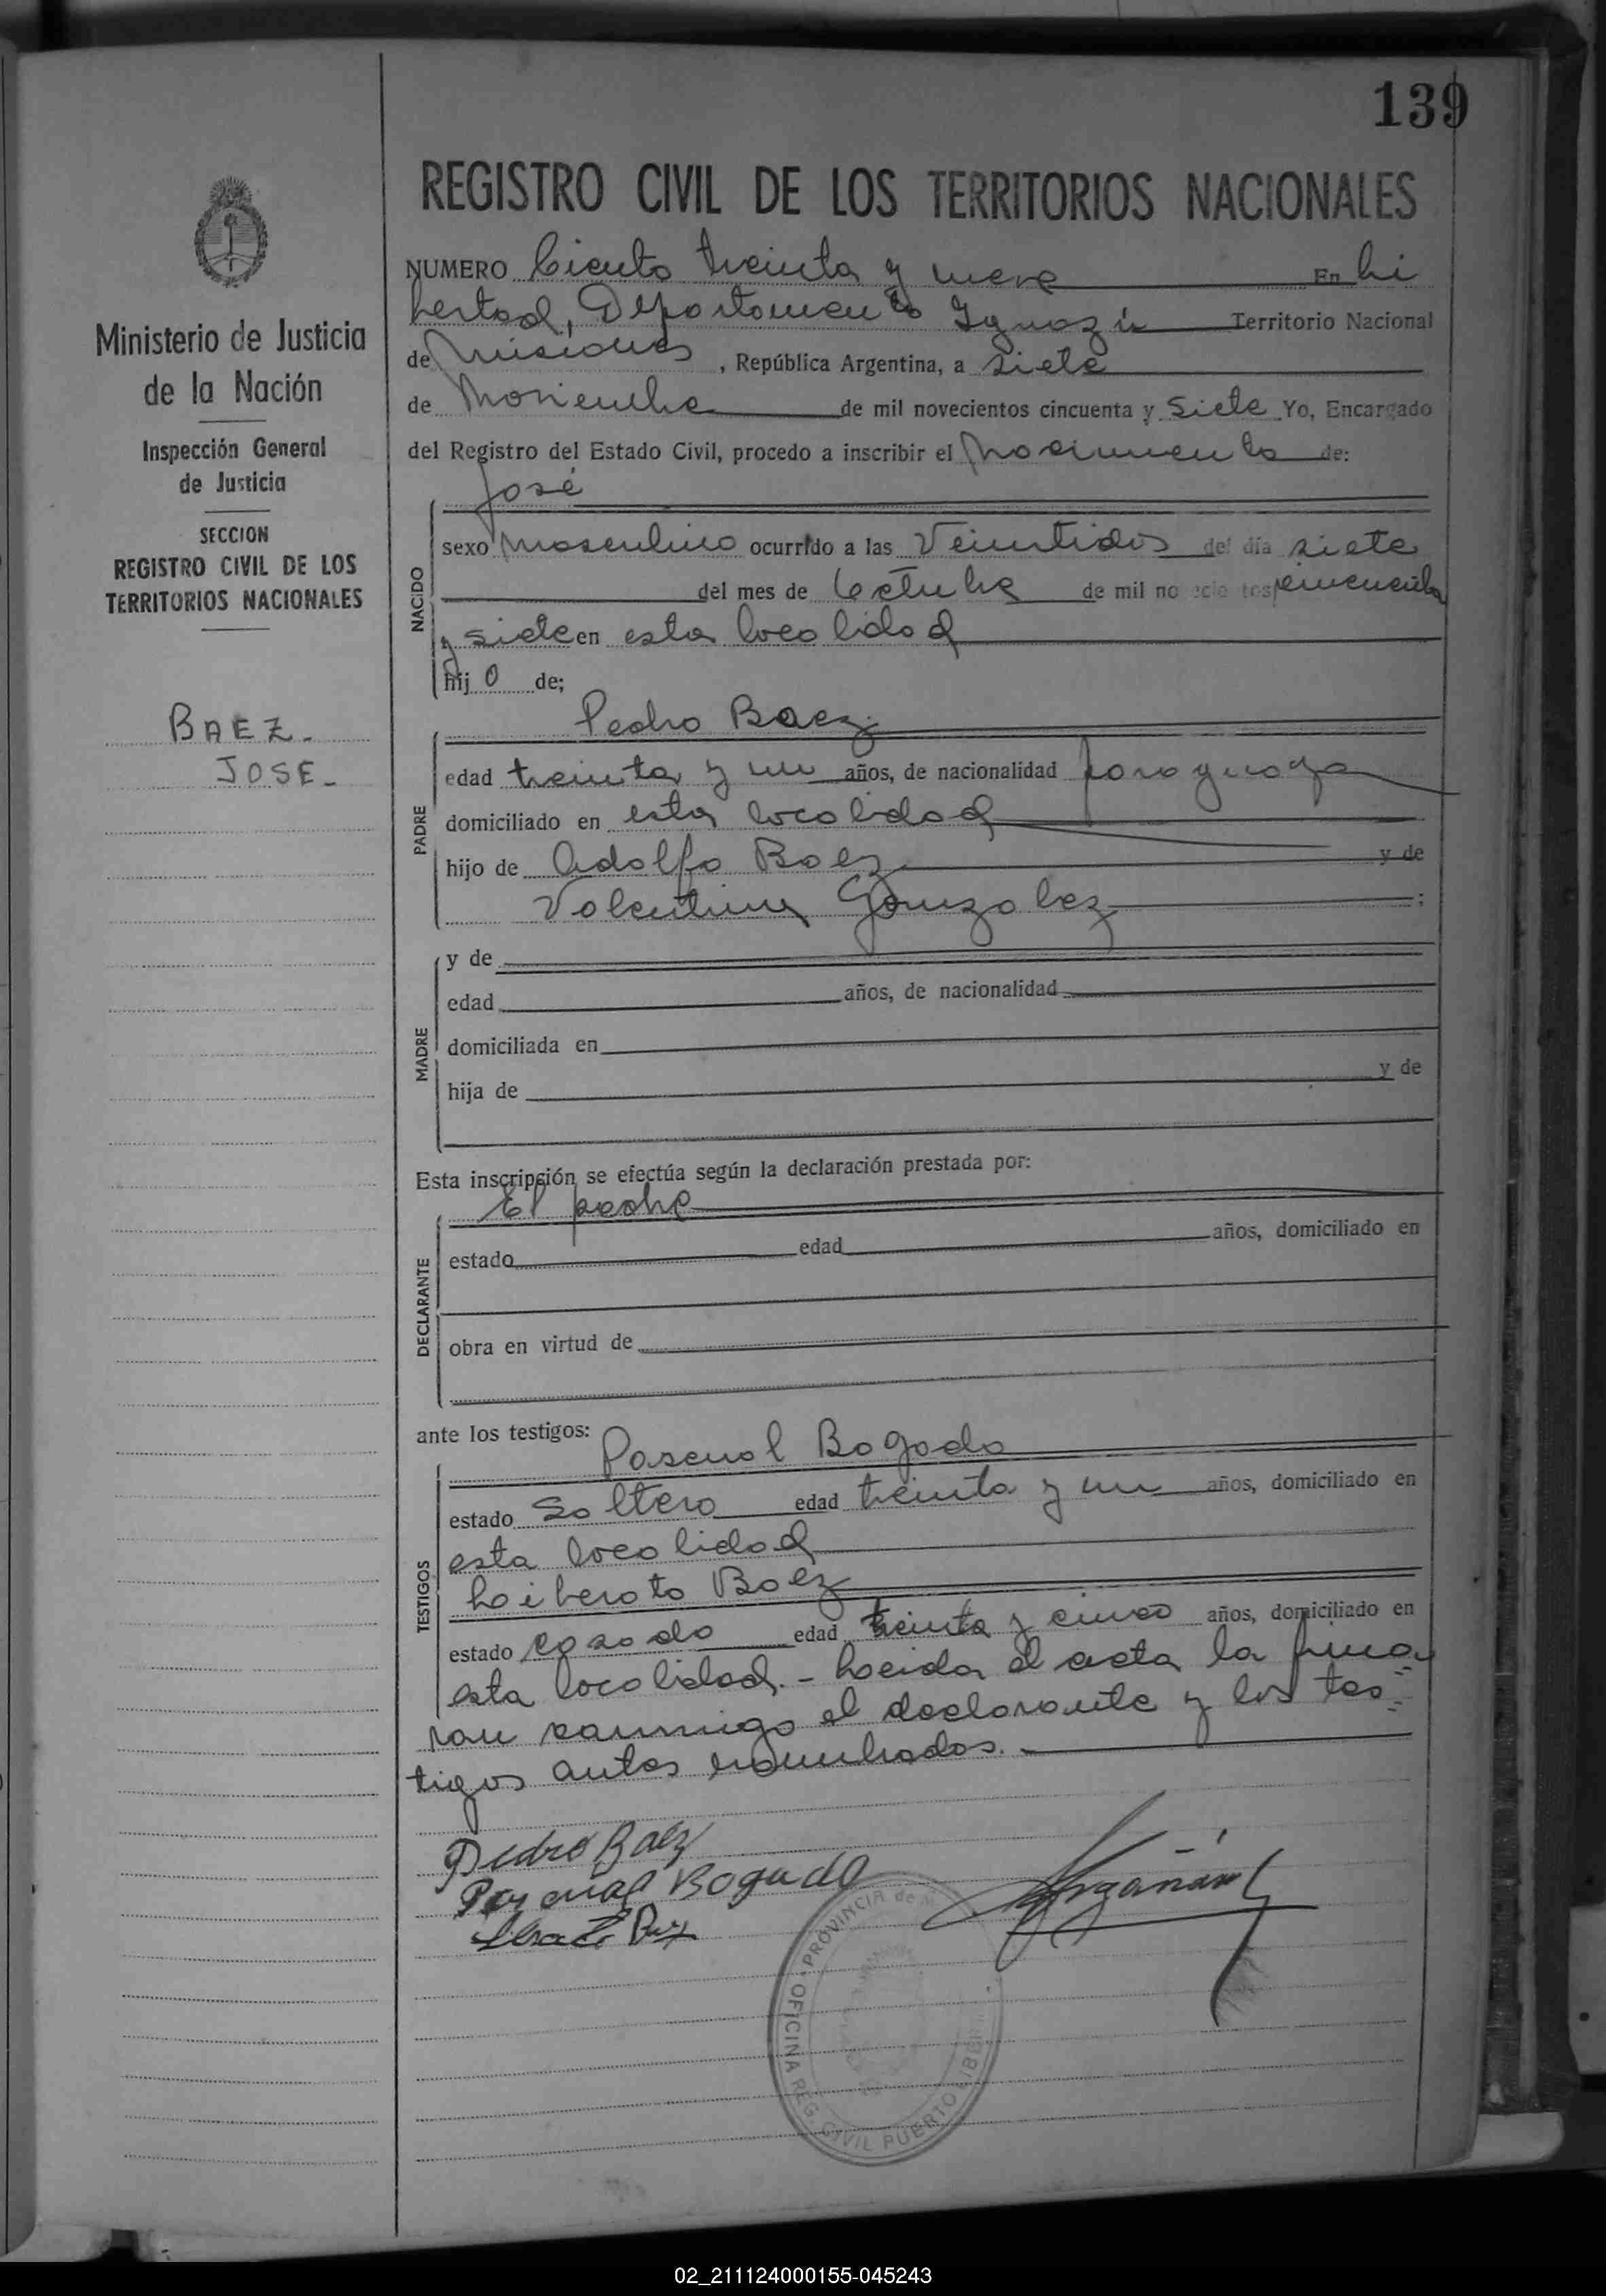 139
REGISTRO CIVIL DE LOS TERRITORIOS NACIONALES
NUMERO Ciento treinta y nueve En Li
bertad, Departamento Iguazú Territorio Nacional
de Misiones, República Argentina, a siete
de Noviembre de mil novecientos cincuenta y siete Yo, Encargado
del Registro del Estado Civil, procedo a inscribir el Nacimiento de:
José
NACIDO
sexo masculino ocurrido a las Veintidos del día siete
del mes de Octubre de mil novecientos cincuenta
y siete en esta localidad
hijo de;
Pedro Baez
PADRE
edad treinta y un años, de nacionalidad paraguaya
domiciliado en esta localidad
hijo de Adolfo Baez y de
Valentina Gonzalez ;
MADRE
y de
edad años, de nacionalidad
domiciliada en
hija de y de
Esta inscripción se efectúa según la declaración prestada por:
El padre
DECLARANTE
estado edad años, domiciliado en
obra en virtud de
ante los testigos:
Pascual Bogado
TESTIGOS
estado Soltero edad treinta y un años, domiciliado en
esta localidad
Baez
estado casado edad treinta y cinco años, domiciliado en
esta localidad. - Leida el acta la firma
ran conmigo el declarante y los tes=
tigos antes nombrados. -
Pedro Baez
Pascual Bogado
OFICINA REG. CIVIL PUERTO LIBERTAD
PROVINCIA de
Ministerio de Justicia
de la Nación
Inspección General
de Justicia
SECCION
REGISTRO CIVIL DE LOS
TERRITORIOS NACIONALES
BAEZ.
JOSE-
02_211124000155-045243